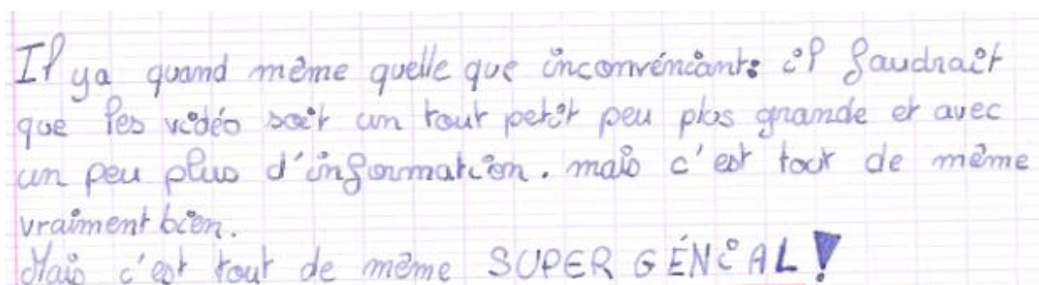 Il ya quand même quelle que inconvéniants il faudrait
que les vidéo soit un tout petit peu plus grande et avec
un peu plus d'information. mais c'est tout de même
vraiment bien.
Mais c'est tout de même SUPER GÉNiAL!